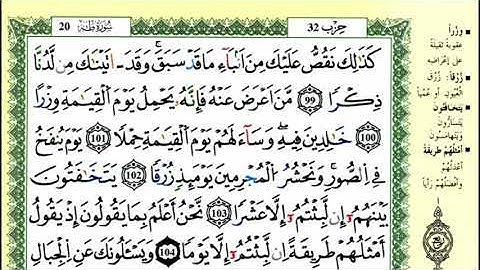 سُورَةُ طَهَ 20
حِزْب 32
كَذَٰلِكَ نَقُصُّ عَلَيْكَ مِنْ أَنۢبَآءِ مَا قَدْ سَبَقَ وَقَدَ ـ اتَيْنَٰكَ مِن لَّدُنَّا
ذِكْراً 99 مَّنْ أَعْرَضَ عَنْهُ فَإِنَّهُۥ يَحْمِلُ يَوْمَ ٱلْقِيَٰمَةِ وِزْراً
100 خَٰلِدِينَ فِيهِ وَسَآءَ لَهُمْ يَوْمَ ٱلْقِيَٰمَةِ حِمْلاً 101 يَوْمَ يُنفَخُ
فِى ٱلصُّورِ وَنَحْشُرُ ٱلْمُجْرِمِينَ يَوْمَئِذٍ زُرْقاً 102 يَتَخَٰفَتُونَ
بَيْنَهُمُۥٓ إِن لَّبِثْتُمُۥٓ إِلَّا عَشْراً 103 نَّحْنُ أَعْلَمُ بِمَا يَقُولُونَ إِذْ يَقُولُ
أَمْثَلُهُمْ طَرِيقَةً إِن لَّبِثْتُمُۥٓ إِلَّا يَوْماً 104 وَيَسْـَٔلُونَكَ عَنِ ٱلْجِبَالِ
وِزْراً
عقوبة ثقيلة
على إعراضه
زُرْقاً: زُرْقَ
العُيُون، أو عُمْياً
يَتَخَافَتُونَ
يَتَسَارُّونَ
وَيَتَهَامَسُونَ
أَمْثَلُهُمْ طَرِيقَةً
أَعْدَلُهُمْ
وَأَفْضَلُهُمْ رَأْياً